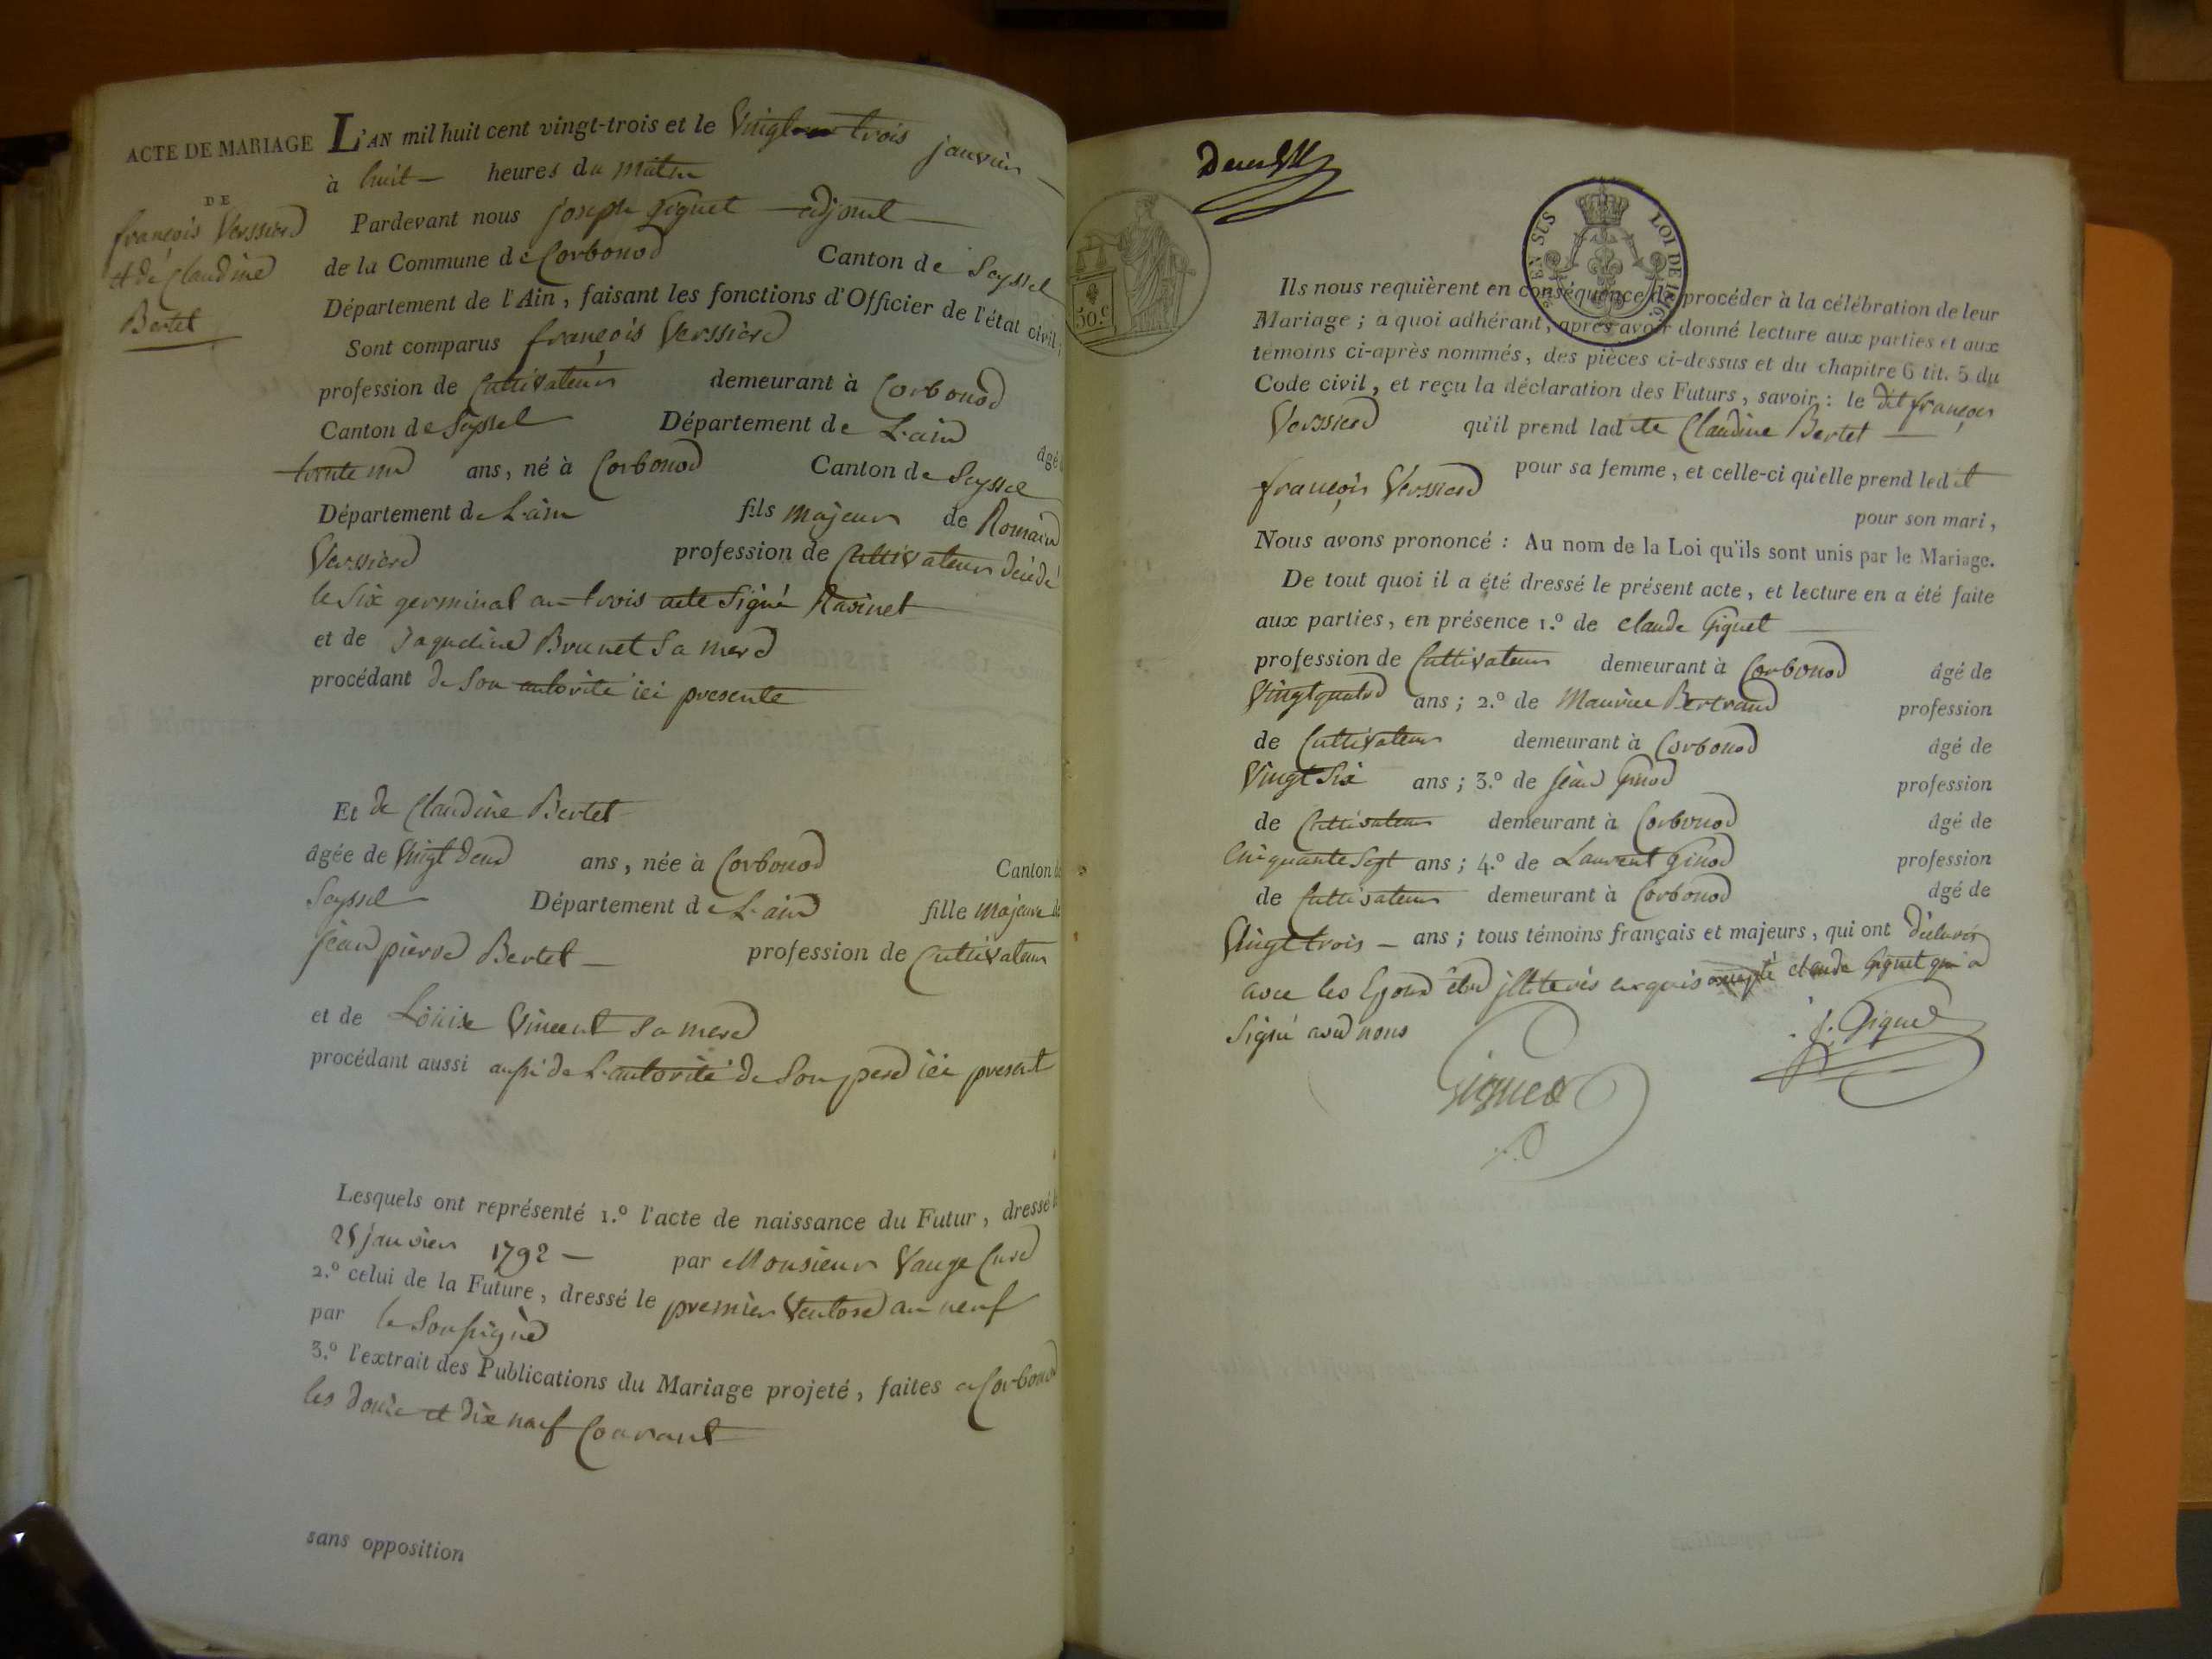 ACTE DE MARIAGE
DE
françois Verssierd
et de Claudine
Bertet
L'AN mil huit cent vingt-trois et le Vingt trois janvier
à huit heures du matin
Pardevant nous joseph Giguet adjoint
de la Commune de Corbonod Canton de Seyssel
Département de l'Ain, faisant les fonctions d'Officier de l'état civil,
Sont comparus françois Verssierd
profession de Cultivateur demeurant à Corbonod
Canton de Seyssel Département de L'ain âgé
trente un ans, né à Corbonod Canton de Seyssel
Département de L'ain fils majeur de Romain
Verssierd profession de Cultivateur décédé
le Six germinal an trois acte Signé Ravinet
et de Jaqueline Brunet Sa mere
procédant de Son autorité ici presente
Et de Claudine Bertet
âgée de Vingt deux ans, née à Corbonod Canton de
Seyssel Département de L'ain fille majeure de
jean pierre Bertet profession de Cultivateur
et de Louise Vincent Sa mere
procédant aussi aussi de L'autorité de Son pere ici present
Lesquels ont représenté 1.º l'acte de naissance du Futur, dressé le
25 janvier 1792 par Monsieur Vauge Curé
2.º celui de la Future, dressé le premier Ventose an neuf
par le Soussigné
3.º l'extrait des Publications du Mariage projeté, faites a Corbonod
les douze et dix neuf Courant
sans opposition
EN SUS LOI DE 1816.
50.c
Ils nous requièrent en conséquence de procéder à la célébration de leur
Mariage; à quoi adhérant, après avoir donné lecture aux parties et aux
témoins ci-après nommés, des pièces ci-dessus et du chapitre 6 tit. 5 du
Code civil, et reçu la déclaration des Futurs, savoir: le dit françois
Verssierd qu'il prend ladite Claudine Bertet
pour sa femme, et celle-ci qu'elle prend ledit
françois Verssierd
pour son mari,
Nous avons prononcé: Au nom de la Loi qu'ils sont unis par le Mariage.
De tout quoi il a été dressé le présent acte, et lecture en a été faite
aux parties, en présence 1.º de claude Giguet
profession de Cultivateur demeurant à Corbonod âgé de
Vingt quatre ans; 2.º de Maurice Bertrand profession
de Cultivateur demeurant à Corbonod âgé de
Vingt Six ans; 3.º de jean Ginod profession
de Cultivateur demeurant à Corbonod âgé de
Cinquante Sept ans; 4.º de Laurent Ginod profession
de Cultivateur demeurant à Corbonod âgé de
Vingt trois ans; tous témoins français et majeurs, qui ont déclarés
avec les Epoux être jlliterés enquis excepté claude Giguet qui a
Signé avec nous
J. Giguet
Giguet